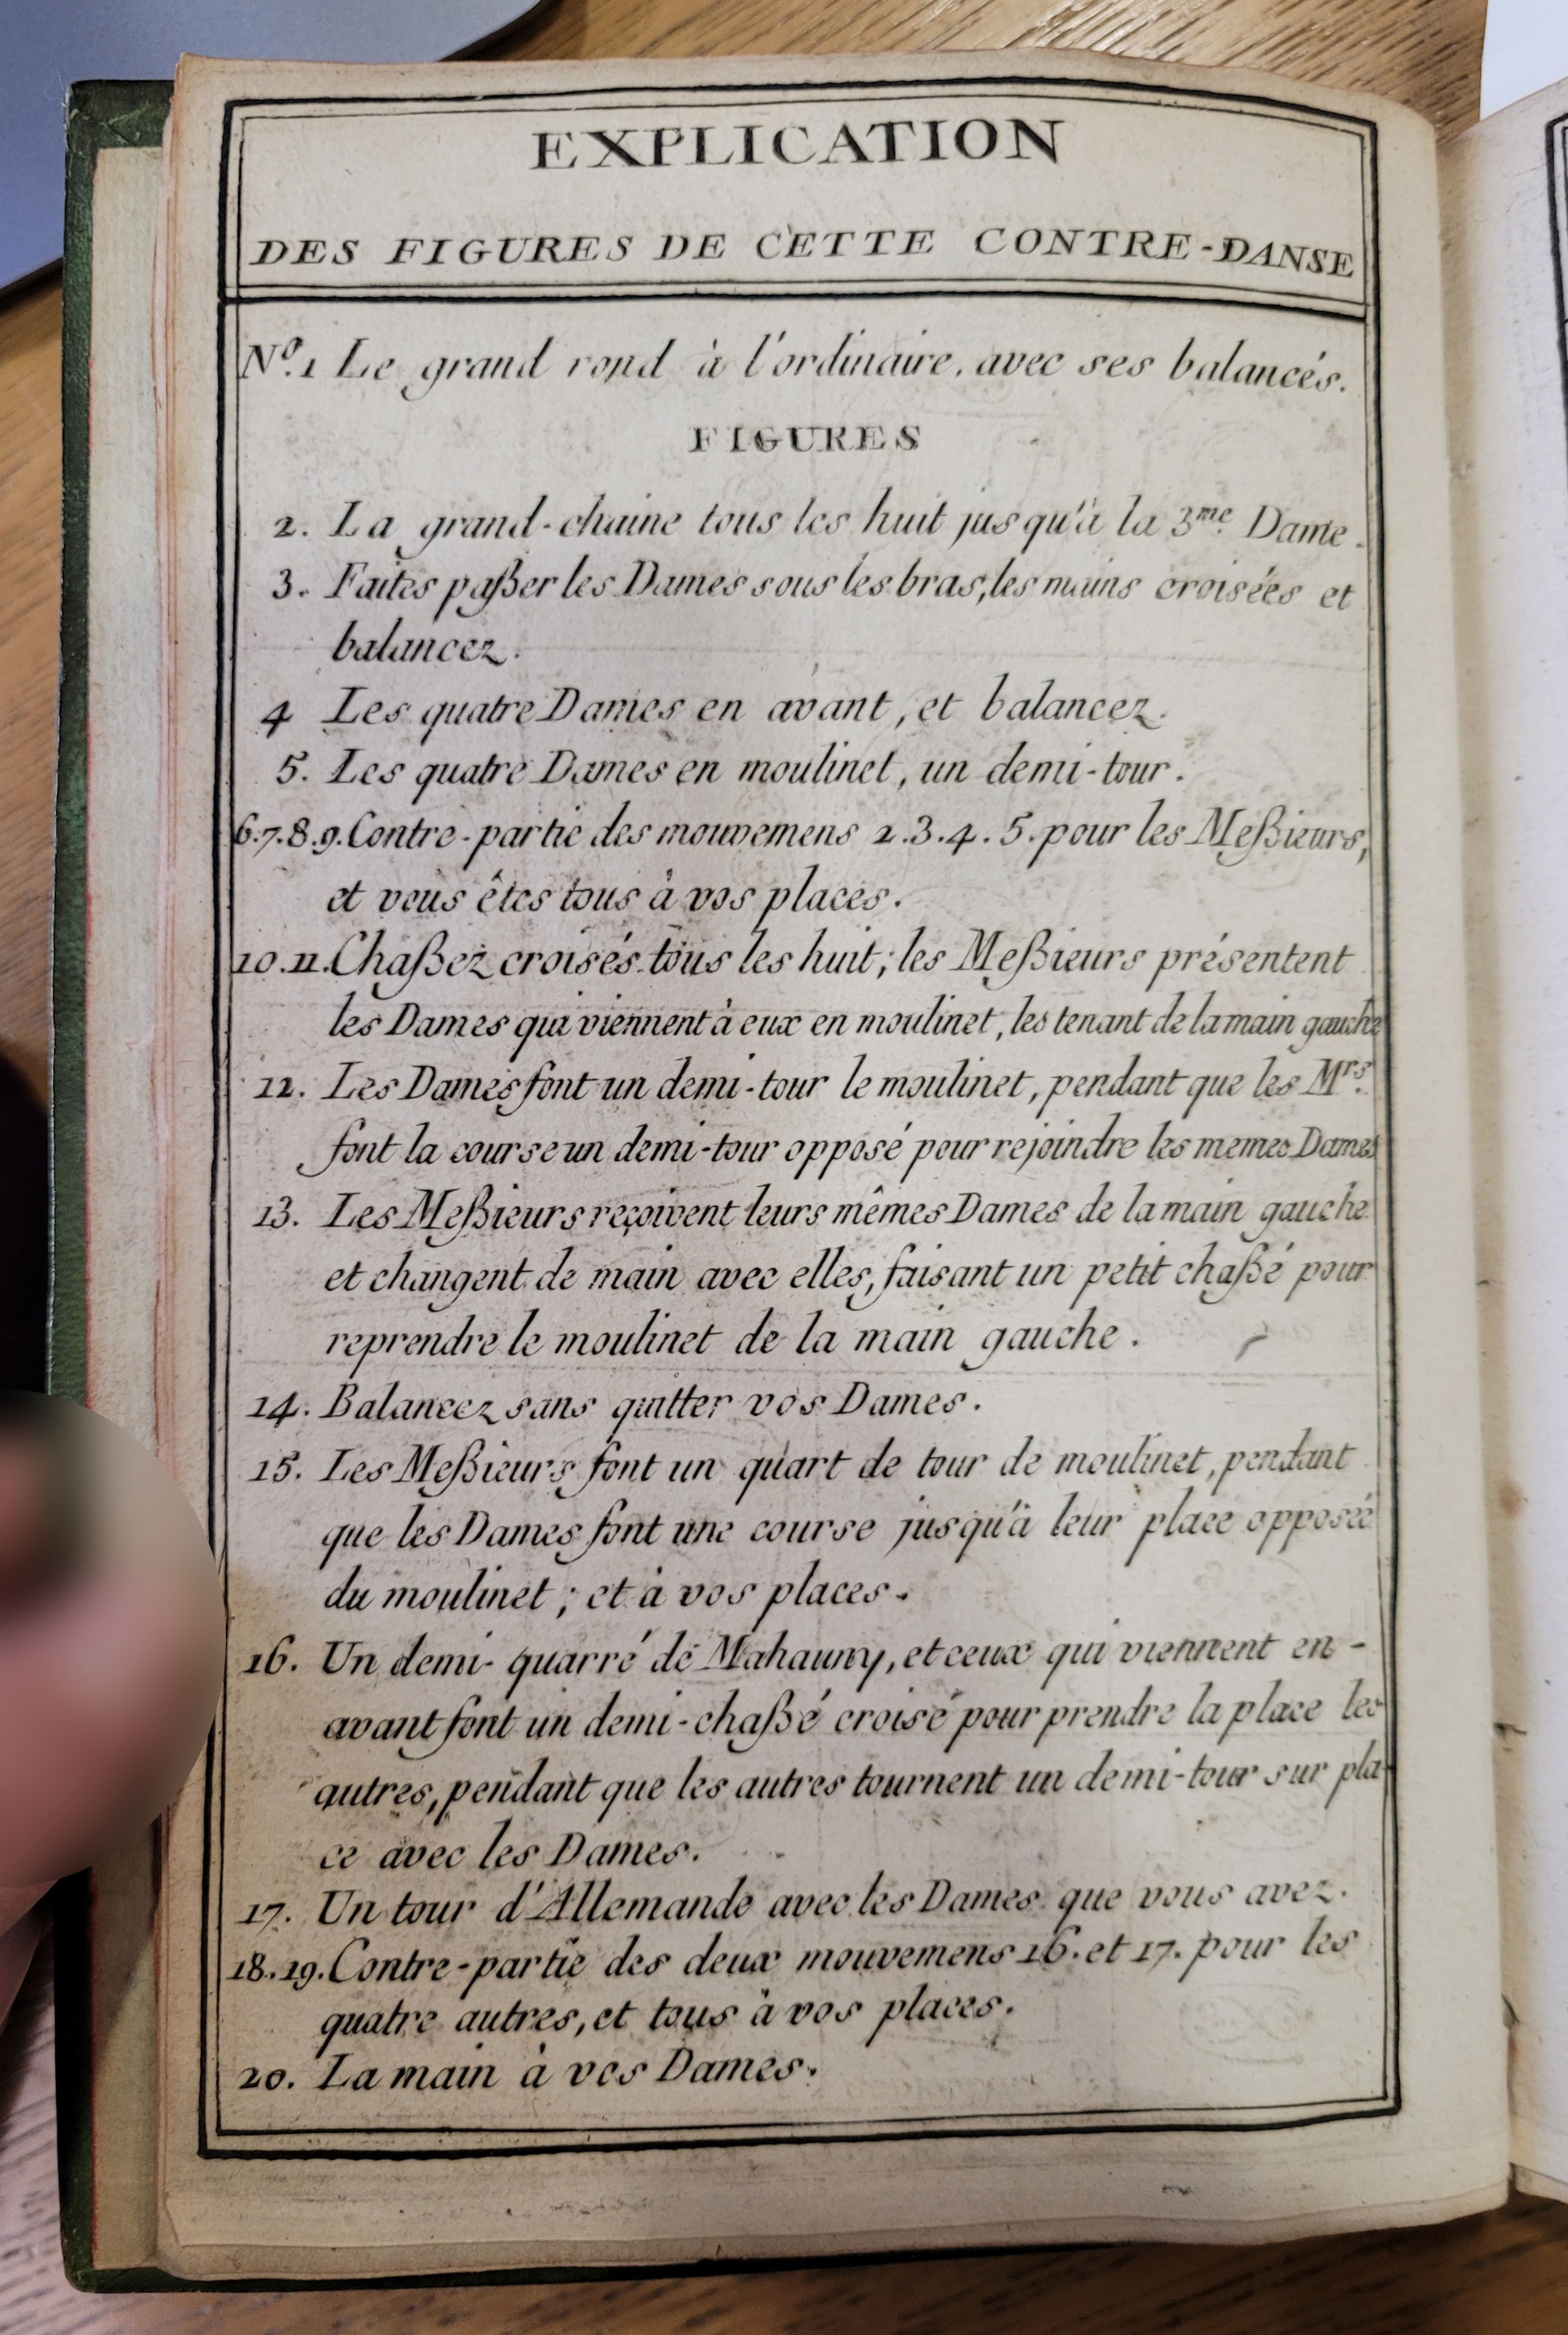 EXPLICATION
DES FIGURES DE CETTE CONTRE-DANSE
Nº. 1 Le grand rond à l'ordinaire, avec ses balancés.
FIGURES
2. La grand-chaine tous les huit jusqu'à la 3.me Dame.
3. Faites paßer les Dames sous les bras, les mains croisées et
balancez.
4 Les quatre Dames en avant, et balancez.
5. Les quatre Dames en moulinet, un demi-tour.
6.7.8.9. Contre-partie des mouvemens 2.3.4.5. pour les Meßieurs,
et vous êtes tous à vos places.
10.11. Chaßez croisés tous les huit; les Meßieurs présentent
les Dames qui viennent à eux en moulinet, les tenant de la main gauche
12. Les Dames font un demi-tour le moulinet, pendant que les M.rs
font la course un demi-tour opposé pour rejoindre les memes Dames
13. Les Meßieurs reçoivent leurs mêmes Dames de la main gauche
et changent de main avec elles, faisant un petit chaßé pour
reprendre le moulinet de la main gauche.
14. Balancez sans quitter vos Dames.
15. Les Meßieurs font un quart de tour de moulinet, pendant
que les Dames font une course jusqu'à leur place opposée
du moulinet; et à vos places.
16. Un demi-quarré de Mahauny, et ceux qui viennent en-
avant font un demi-chaßé croisé pour prendre la place les
autres, pendant que les autres tournent un demi-tour sur pla-
ce avec les Dames.
17. Un tour d'Allemande avec les Dames que vous avez.
18.19. Contre-partie des deux mouvemens 16. et 17. pour les
quatre autres, et tous à vos places.
20. La main à vos Dames.